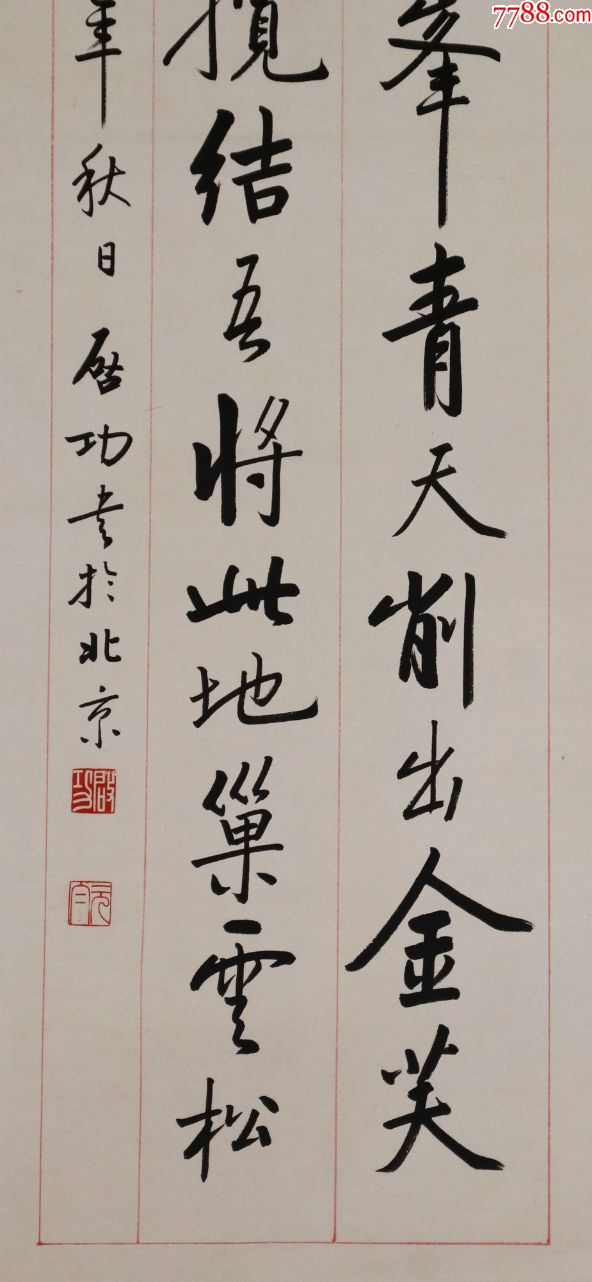 7788.com
峯青天削出金芙
攬結吾將此地巢雲松
年秋日 启功书於北京
啟功
元白